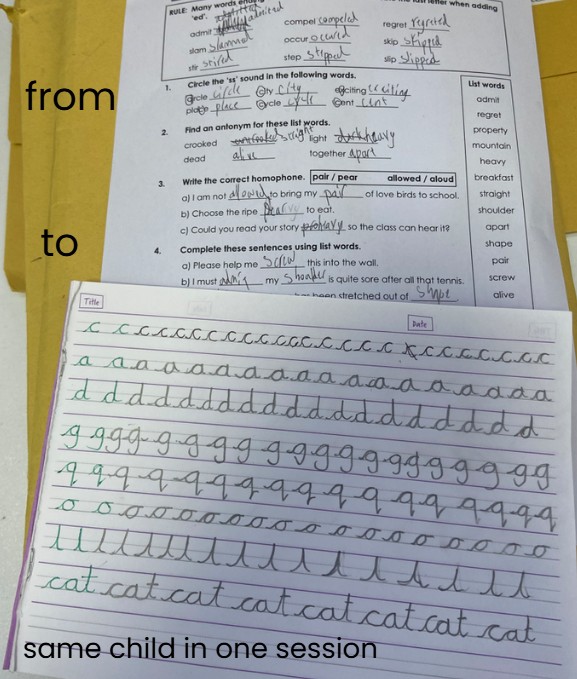 last letter when adding
RULE: Many words ending
'ed'. admitted
admit
compel compeled
regret regreted
slam slammed
occur occured
skip skipped
stir stired
step stepped
slip slipped
from
1. Circle the 'ss' sound in the following words.
circle circle
city city
exciting
place place
cycle cycle
cent cent
2. Find an antonym for these list words.
crooked
light heavy
dead alive
together apart
3. Write the correct homophone. pair / pear allowed / aloud
a) I am not allowed to bring my pair of love birds to school.
b) Choose the ripe to eat.
c) Could you read your story so the class can hear it?
to
4. Complete these sentences using list words.
a) Please help me screw this into the wall.
b) I must admit my is quite sore after all that tennis.
been stretched out of shape
List words
admit
regret
property
mountain
heavy
breakfast
straight
shoulder
apart
shape
pair
screw
alive
Title
Date
c c c c c c c c c c c c c c c c c c c c c c c c c
a a a a a a a a a a a a a a a a a a a
d d d d d d d d d d d d d d d d d d d
g g g g g g g g g g g g g g g g g g g g
q q q q q q q q q q q q q q q q q
o o o o o o o o o o o o o o o o o o
l l l l l l l l l l l l l l l l
cat cat cat cat cat cat cat cat
same child in one session